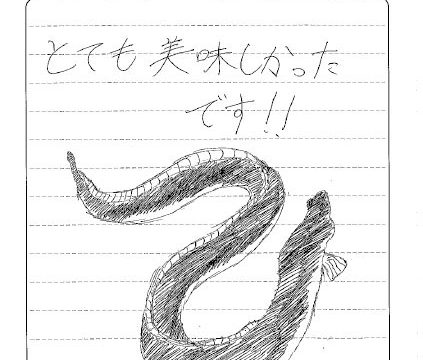 とても美味しかった
です!!